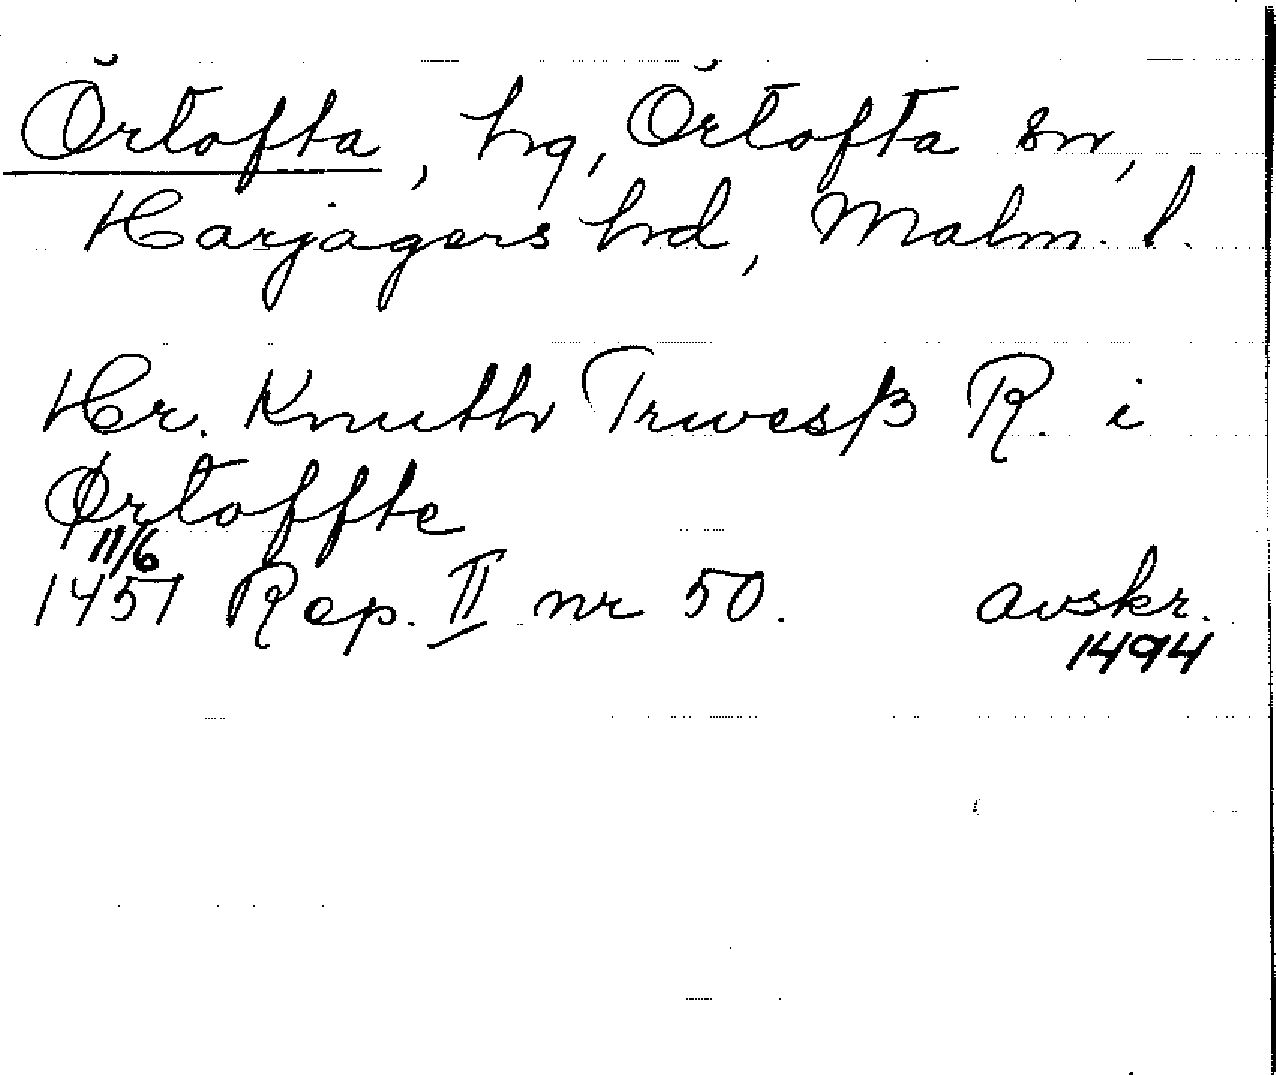 Örtofta, hg, Örtofta sn,
Harjagers hd, Malm. l.
Hr. Knuth Trwesß R. i
Ørtoffte
11/6
1457 Rep. II nr 50. avskr.
1494